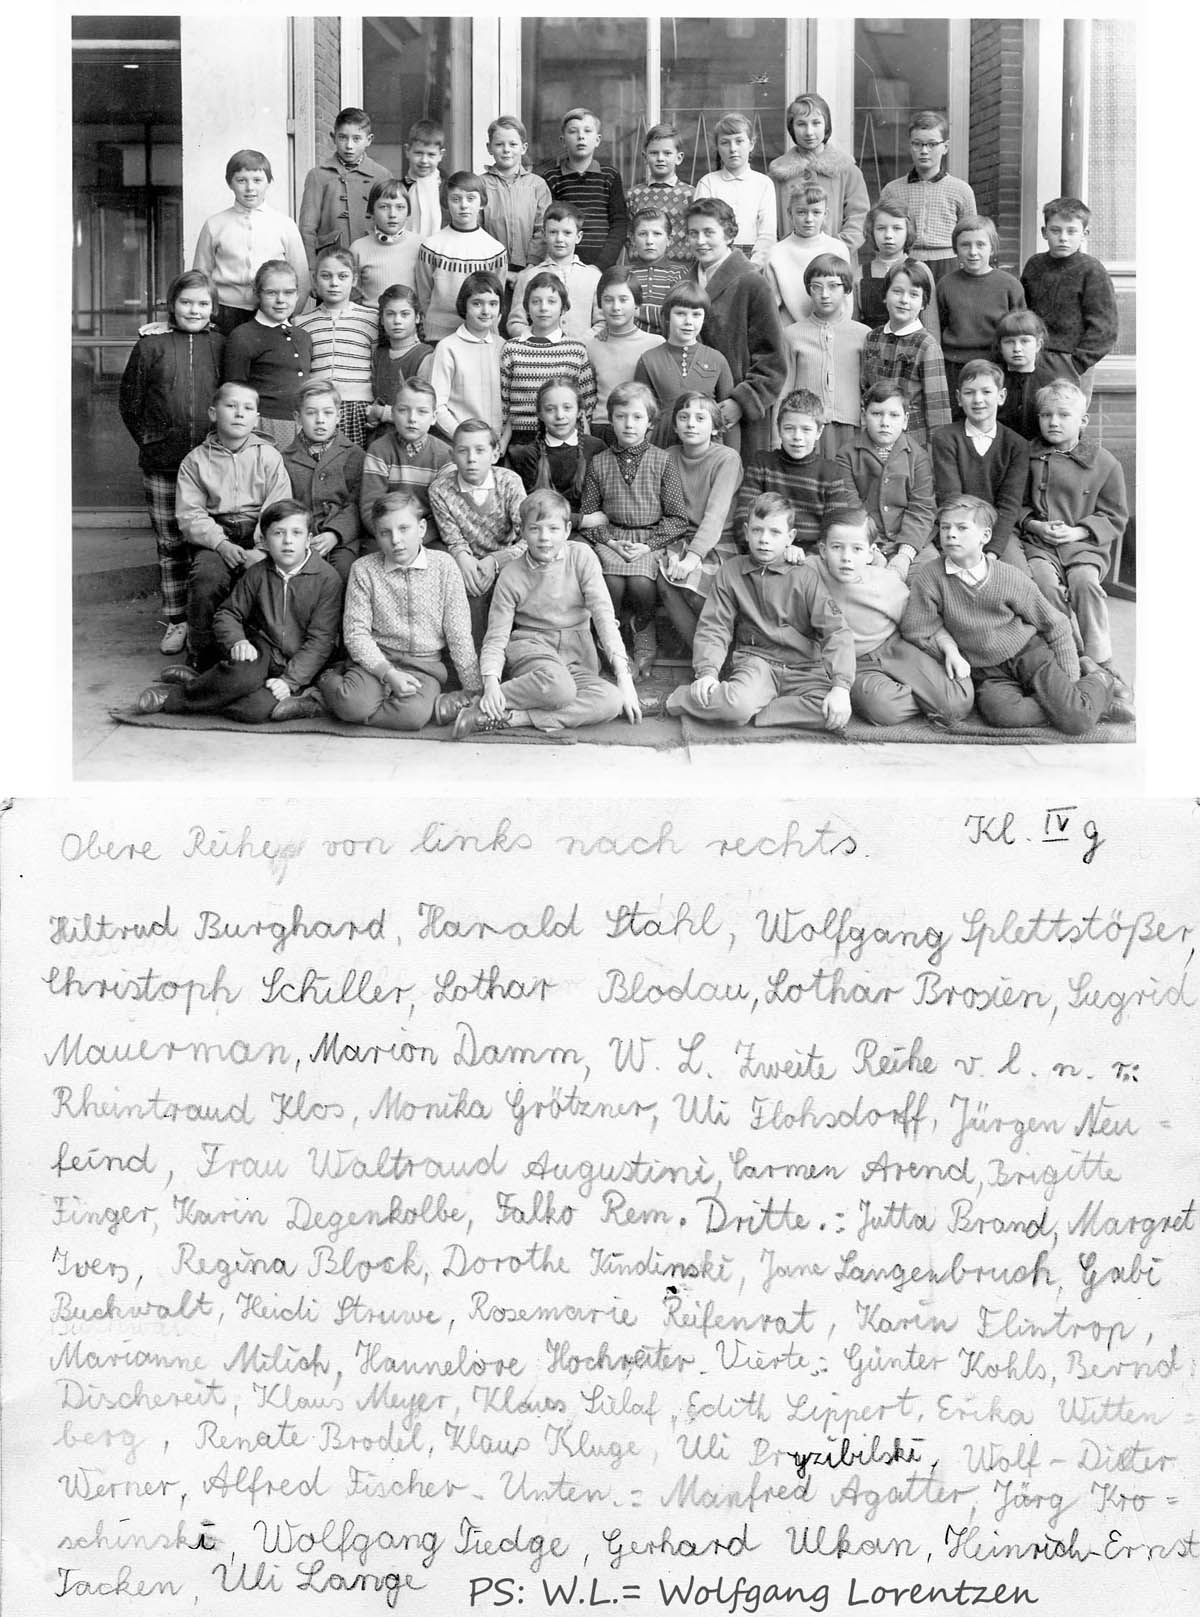 Obere Reihe von links nach rechts. Kl. IV g
Hiltrud Burghard, Harald Stahl, Wolfgang Splettstößer,
Christoph Schiller, Lothar Blodau, Lothar Brosien, Siegrid
Mauerman, Marion Damm, W. L. Zweite Reihe v. l. n. r.:
Rheintraud Klos, Monika Grötzner, Uli Flohsdorff, Jürgen Neu=
feind, Frau Waltraud Augustini, Carmen Arend, Brigitte
Finger, Karin Degenkolbe, Falko Rem. Dritte.: Jutta Brand, Margret
Ivers, Regina Block, Dorothe Kindinski, Jane Langenbruch, Gabi
Buchwalt, Heidi Struwe, Rosemarie Reifenrat, Karin Flintrop,
Marianne Milich, Hannelore Hochreiter. Vierte: Günter Kohls, Bernd
Dischereit, Klaus Meyer, Klaus Sielaf, Edith Lippert, Erika Witten=
berg, Renate Brodel, Klaus Kluge, Uli Pryzibilski, Wolf-Dieter
Werner, Alfred Fischer - Unten.: Manfred Agatter, Jürg Kro=
schinski, Wolfgang Tiedge, Gerhard Ulkan, Heinrich-Ernst
Tacken, Uli Lange PS: W.L.= Wolfgang Lorentzen